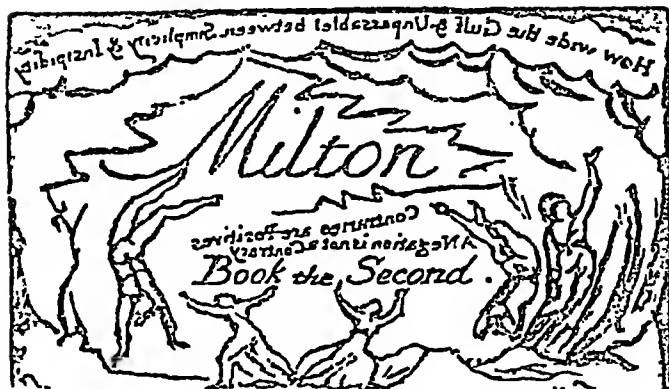 How wide the Gulf & Unpassable! between Simplicity & Insipidity
Milton
Contraries are Positives
A Negation is not a Contrary
Book the Second.